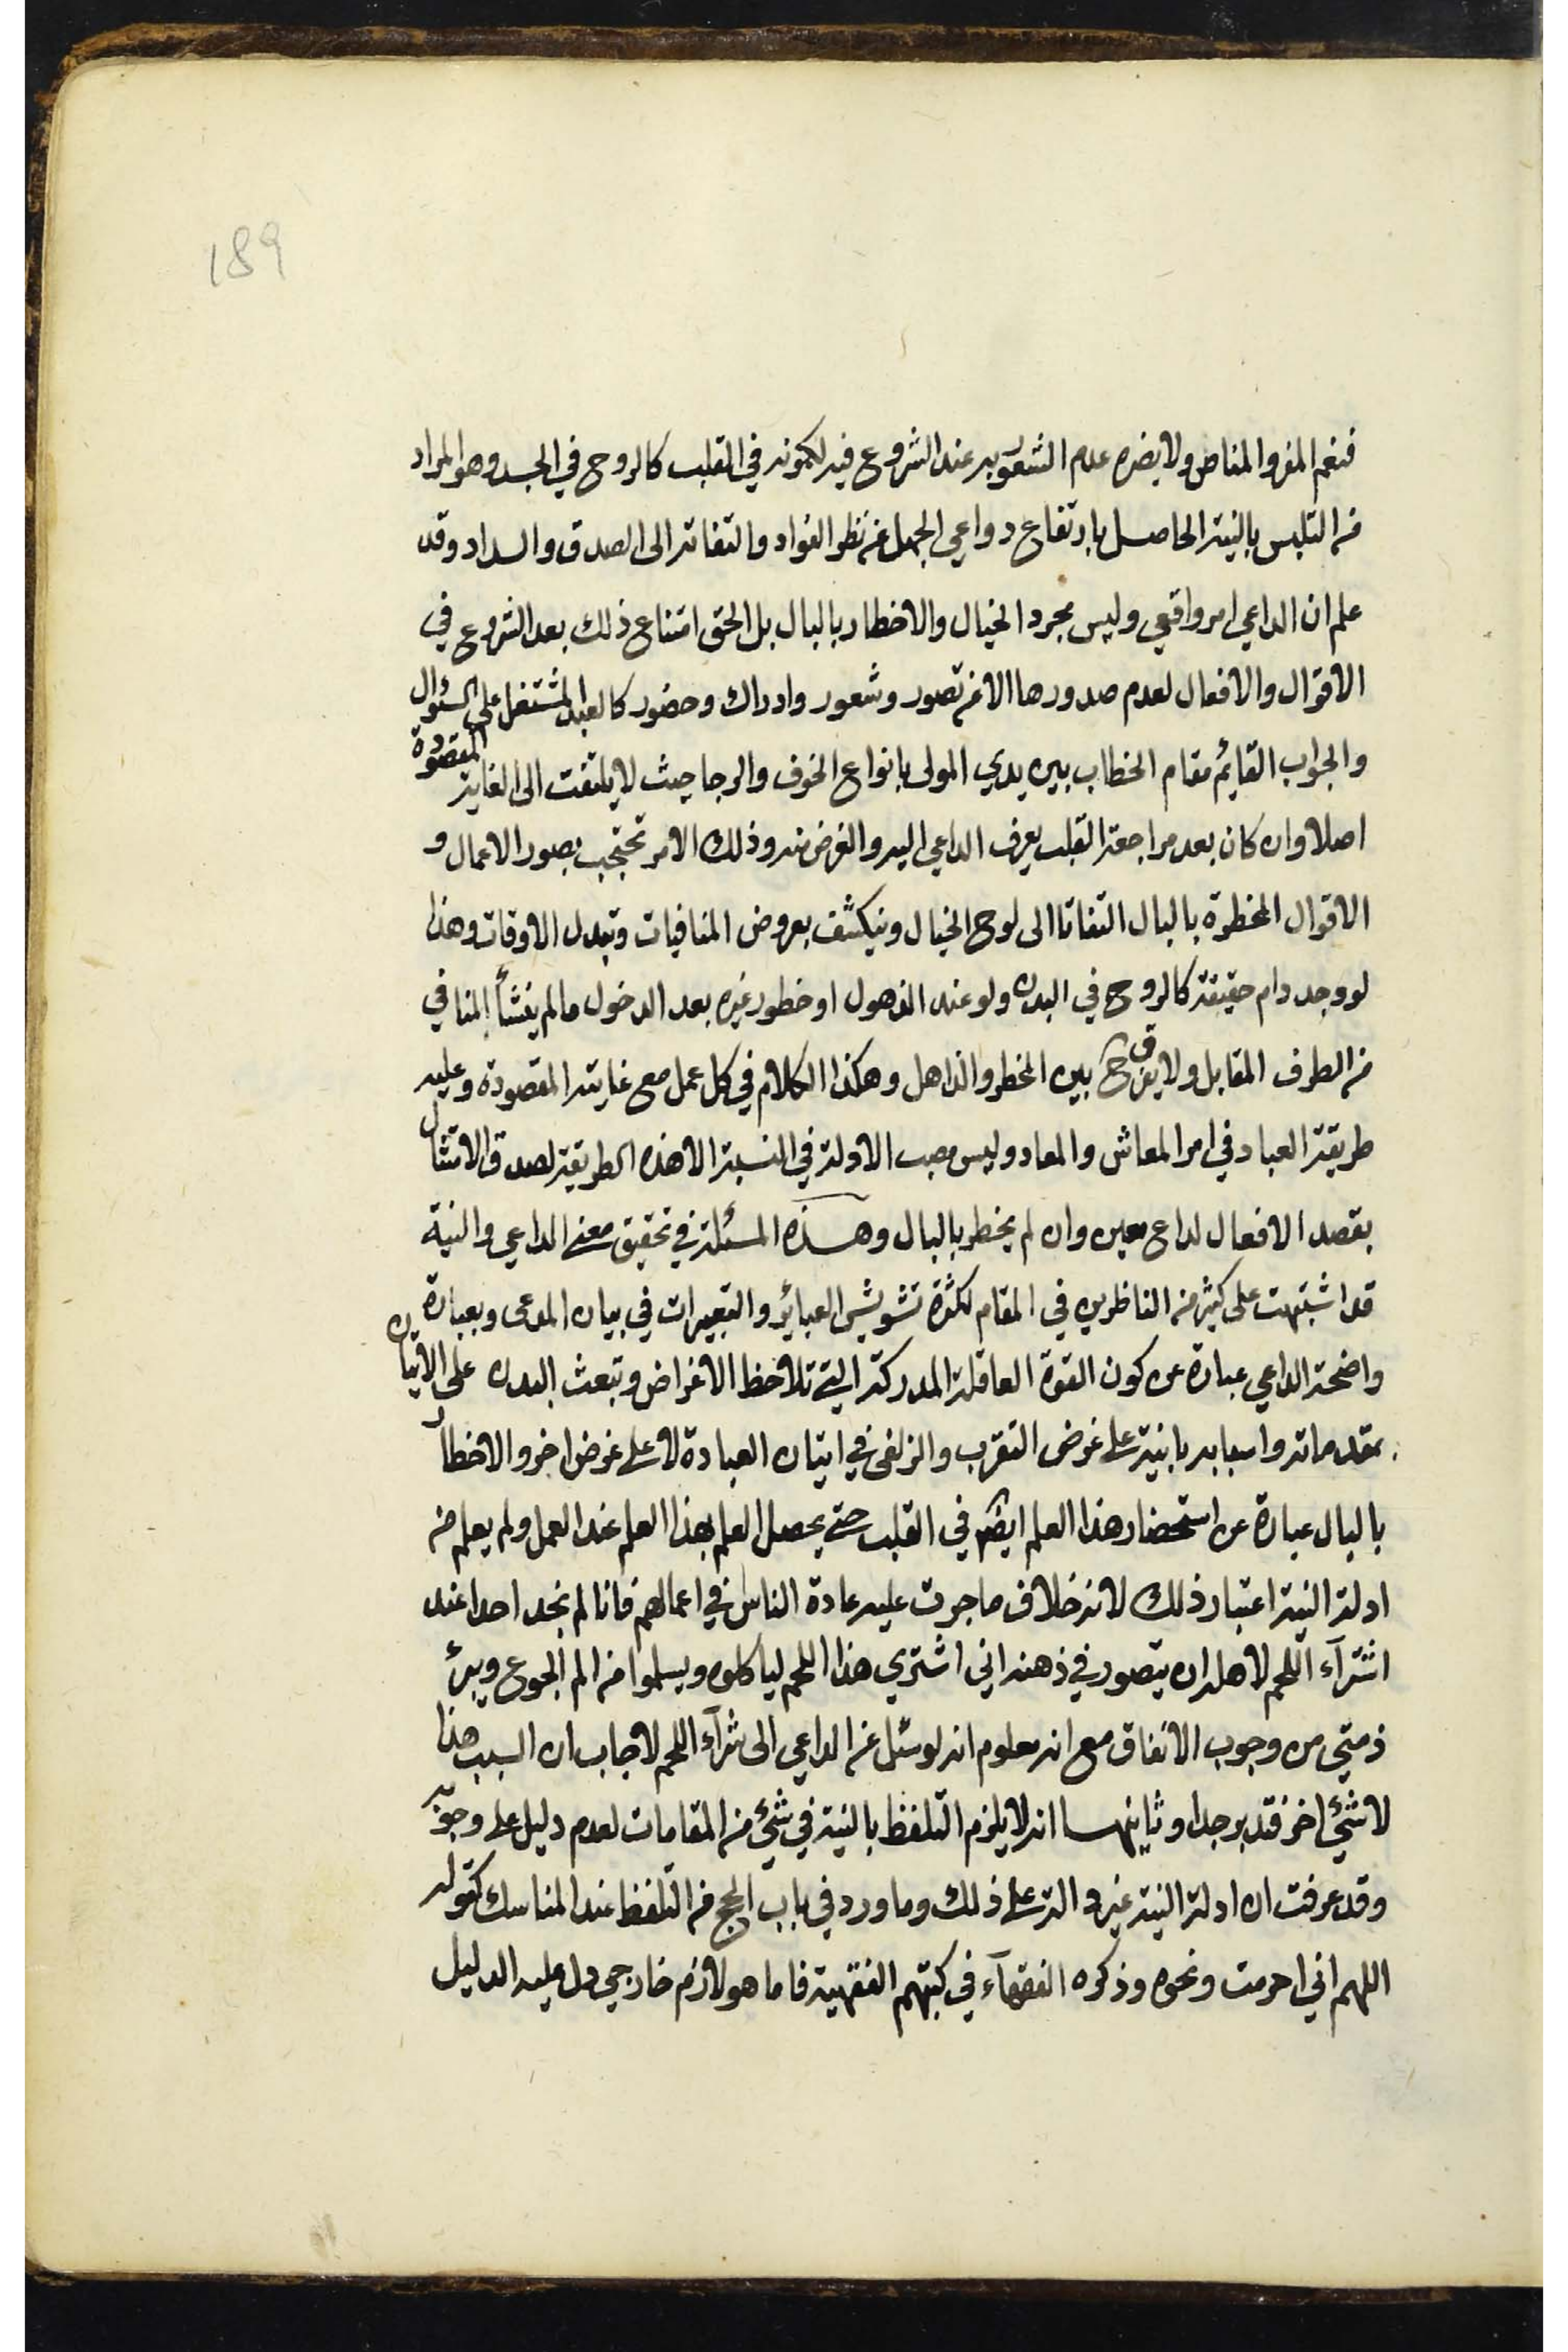 189
فنعم المفر والمناص ولا يضره عدم الشعور به عند الشروع فيه لكمونه في القلب كالروح في الجسد وهو المراد
من التلبس بالنية الحاصل بارتفاع دواعي الجهل عن نظر الفواد والتفاته الى الصدق والسداد وقد
علم ان الداعي امر واقعي وليس مجرد الخيال والاخطار بالبال بل الحق امتناع ذلك بعد الشروع في
الاقوال والافعال لعدم صدورها الا عن تصور وشعور وادراك وحضور كالعبد المشتغل على السئوال
والجواب القائم مقام الخطاب بين يدي المولى بانواع الخوف والرجا حيث لا يلتفت الى الغاية المقصودة
اصلا وان كان بعد مراجعة القلب يعرف الداعي اليه والغرض منه وذلك الامر تحتجب بصور الاعمال و
الاقوال المخطرة بالبال التفاتا الى لوح الخيال وينكشف بعروض المنافيات وتبدل الاوقات وهذا
لو وجد دام حقيقة كالروح في البدن ولو عند الذهول او خطور غيره بعد الدخول ما لم ينشأ المنافي
من الطرف المقابل ولا يفرق ح بين المخطر والذاهل وهكذا الكلام في كل عمل مع غايته المقصودة وعليه
طريقة العباد في امر المعاش والمعاد وليس مصب الادلة في النسبة الا هذه الطريقة لصدق الامتثال
بقصد الافعال لداع معين وان لم يخطر بالبال وهذه المسئلة في تحقيق معنى الداعي والنية
قد اشتبهت على كثير من الناظرين في المقام لكثرة تشويش العبائر والتعبيرات في بيان المدعى وبعبارة
واضحة الداعي عبارة عن كون القوة العاقلة المدركة التي تلاحظ الاغراض وتبعث البدن على الاتيان
بمقدماته واسبابه بانية على غرض التقرب والزلفى في اتيان العبادة لا على غرض اخر والاخطار
بالبال عبارة عن استحضار هذا العلم ايضا في القلب حتى يحصل العلم بهذا العلم عند العمل ولم يعلم من
ادلة النية اعتبار ذلك لانه خلاف ما جرت عليه عادة الناس في اعمالهم فانا لم نجد احدا عند
اشترآء اللحم لاهله ان يتصور في ذهنه اني اشتري هذا اللحم لياكلوه ويسلموا من الم الجوع ويبرئ
ذمتي من وجوب الانفاق مع انه معلوم انه لو سئل عن الداعي الى شرآء اللحم لاجاب ان السبب هذا
لا شئ اخر فتدبر جدا وثانيهما انه لا يلزم التلفظ بالنية في شئ من المقامات لعدم دليل على وجوبه
وقد عرفت ان ادلة النية غير دالة على ذلك وما ورد في باب الحج من التلفظ عند المناسك كقوله
اللهم اني احرمت ونحوه وذكره الفقهآء في كتبهم الفقهية فاما هو لازم خارجي دل عليه الدليل